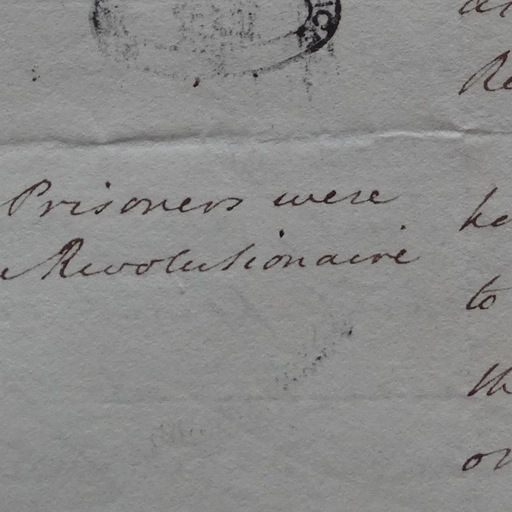 Prisoners were
Revolutionaire
he
to
th
on